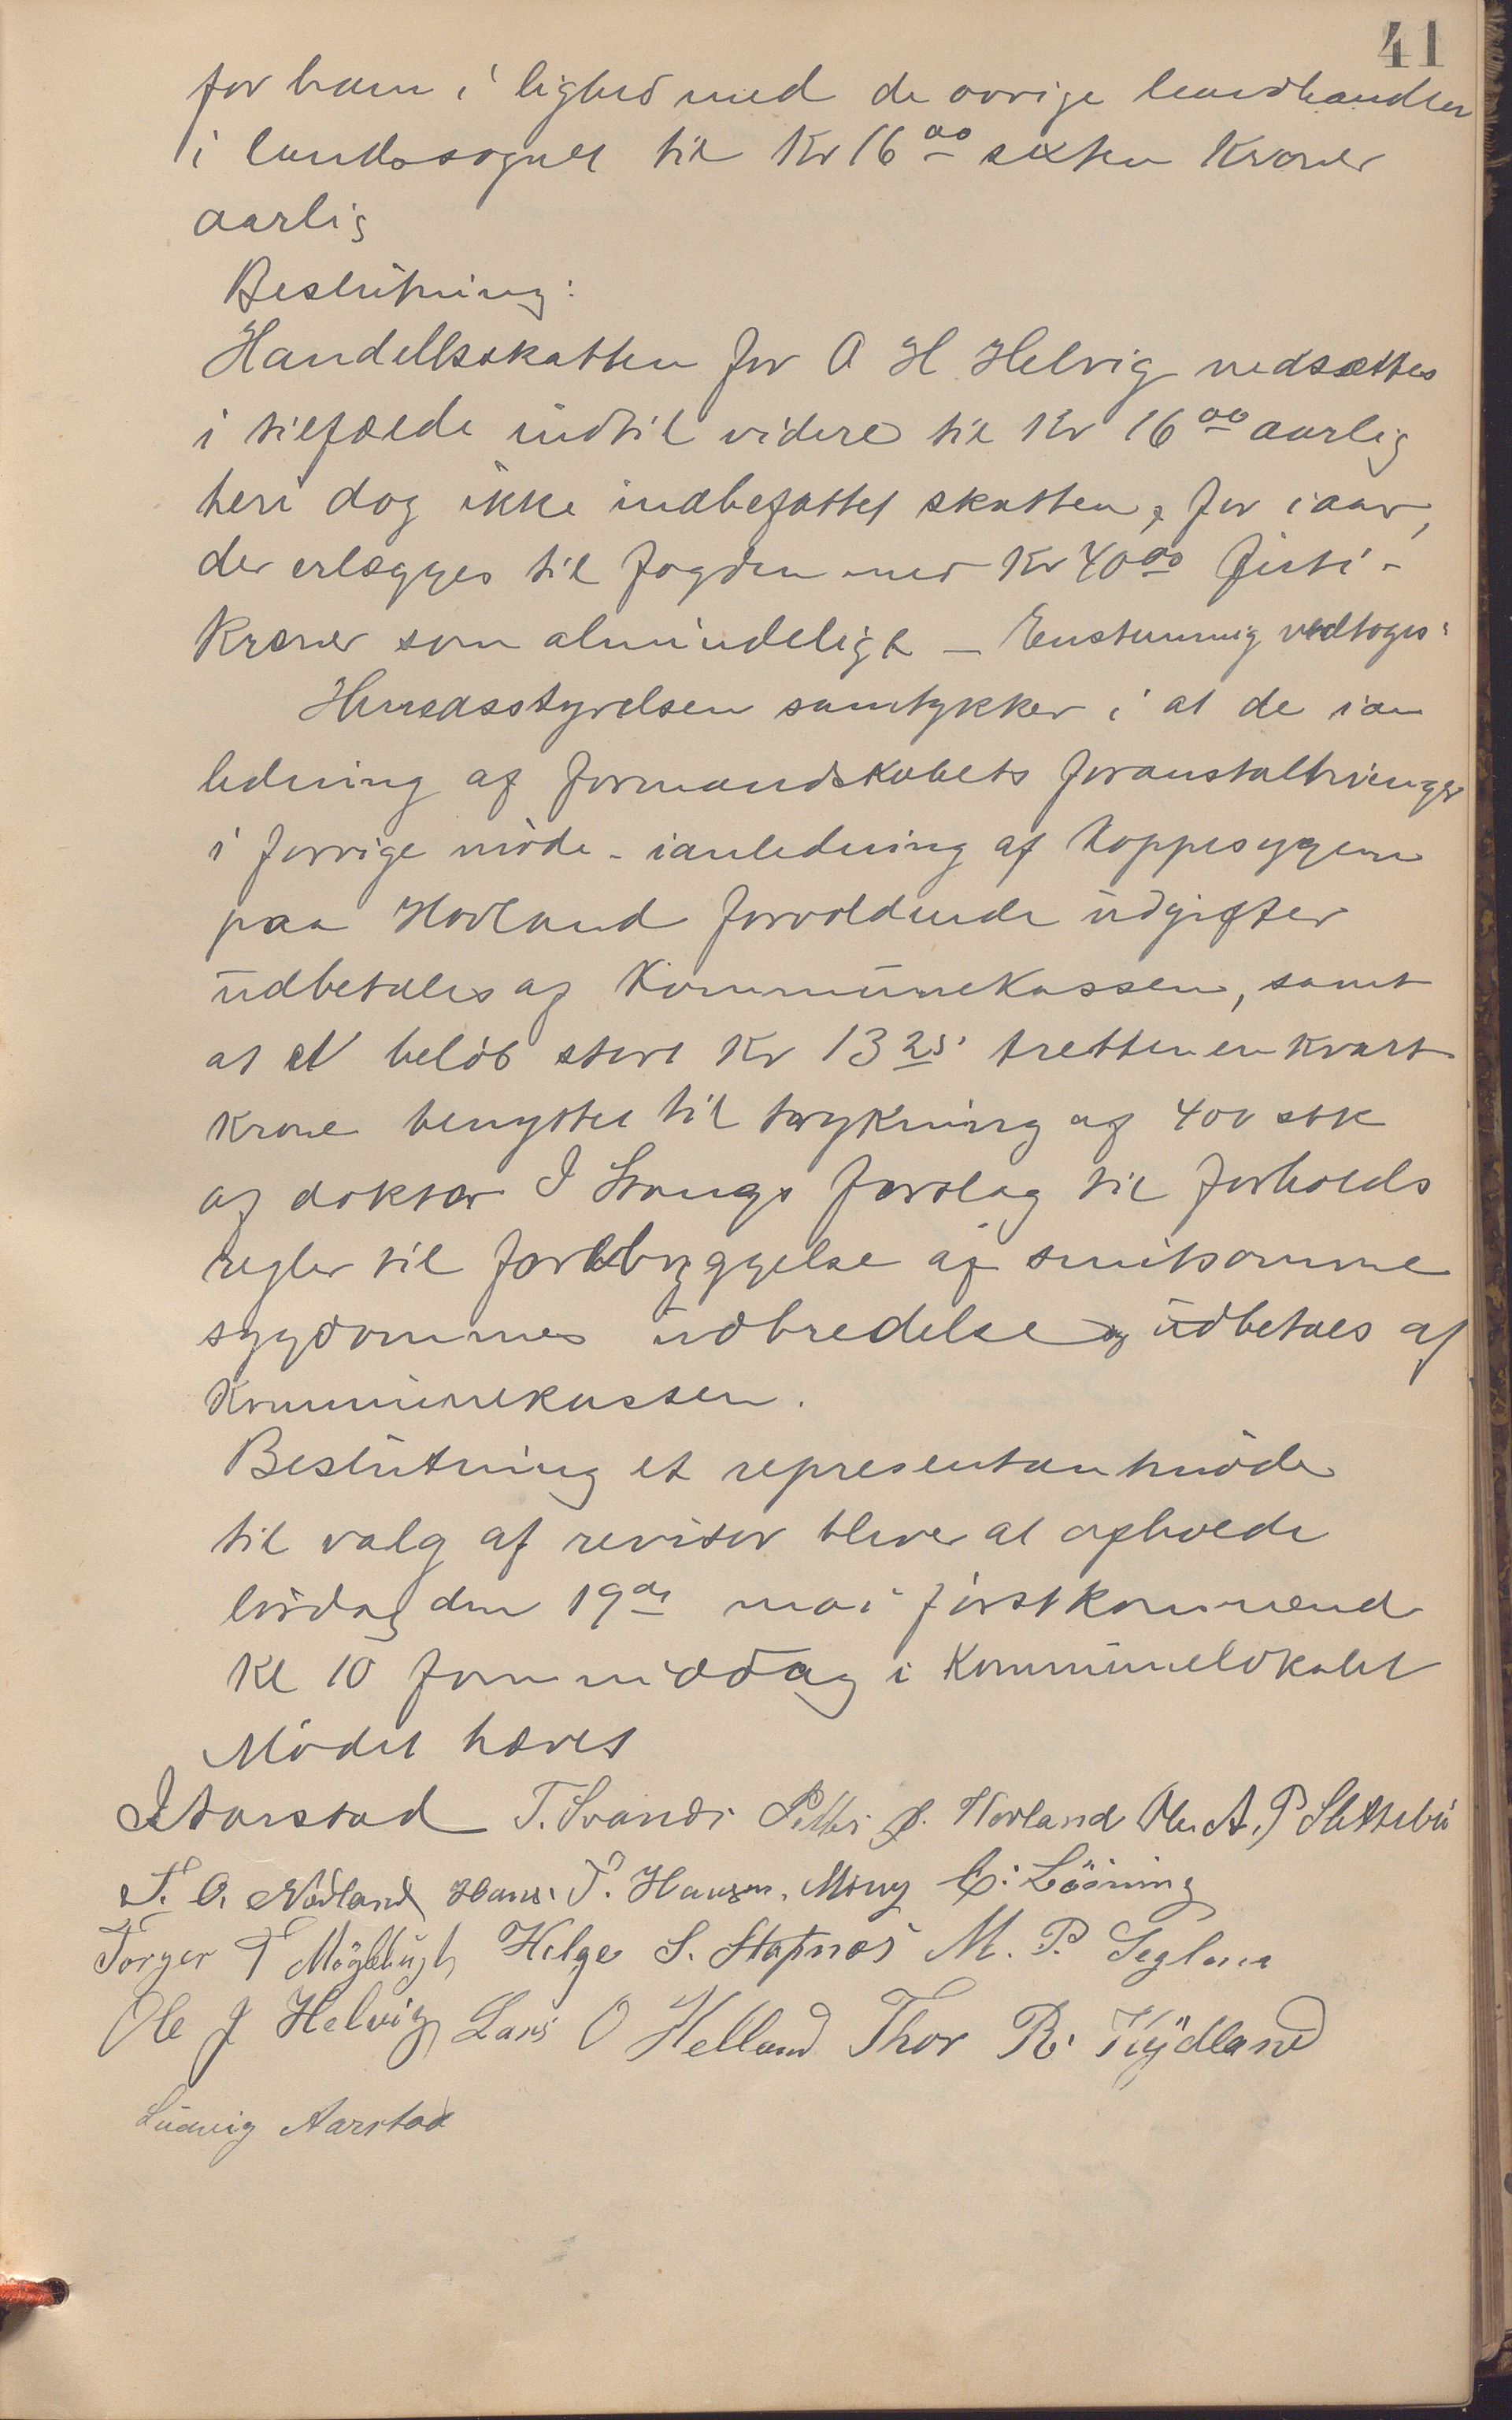 41
for ham i lighed med de øvrige landhandler
i landssognet til Kr 16 00 sexten Kroner
aarlig
Beslutning:
Handellsskatten for O H Helvig nedsættes
i tilfælde indtil videre til Kr 16 00 aarlig
heri dog ikke indbefattet skatten, for iaar,
der erlægges til fogden med Kr 40 00 firti-
kroner som almindeligt – Enstemmig vedtoges:
Herredsstyrelsen samtykker i at de ian
ledning af formandskabets foranstaltninger
i forrige møde - ianledning af koppesygen
paa Hovland forvoldende udgifter
udbetales af Kommunekassen, samt
at et beløb stort Kr 13 25 tretten en kvart
krone benyttet til trykning af 400 stk
af doktor I Stangs forslag til forholds
regler til forebyggelse af smitsomme
sygdommes udbredelse og udbetales af
Kommunekassen.
Beslutning et representantmøde
til valg af revisor bliver at afholde
lørdag den 19de mai førstkommend
Kl 10 formiddag i Kommunelokalet
Mødet hævet
I Aarstad T. Svandø Petter Ø. Hovland Ole A. P Slettebø
T. O. Nodland Hans. P. Hansen. Mong C. Lööning
Torger T Möglebust Helge S. Stapnæs M. P. Seglem
Ole J Helvig Lars O Helland Thor R. Kydland
Ludvig Aarstad